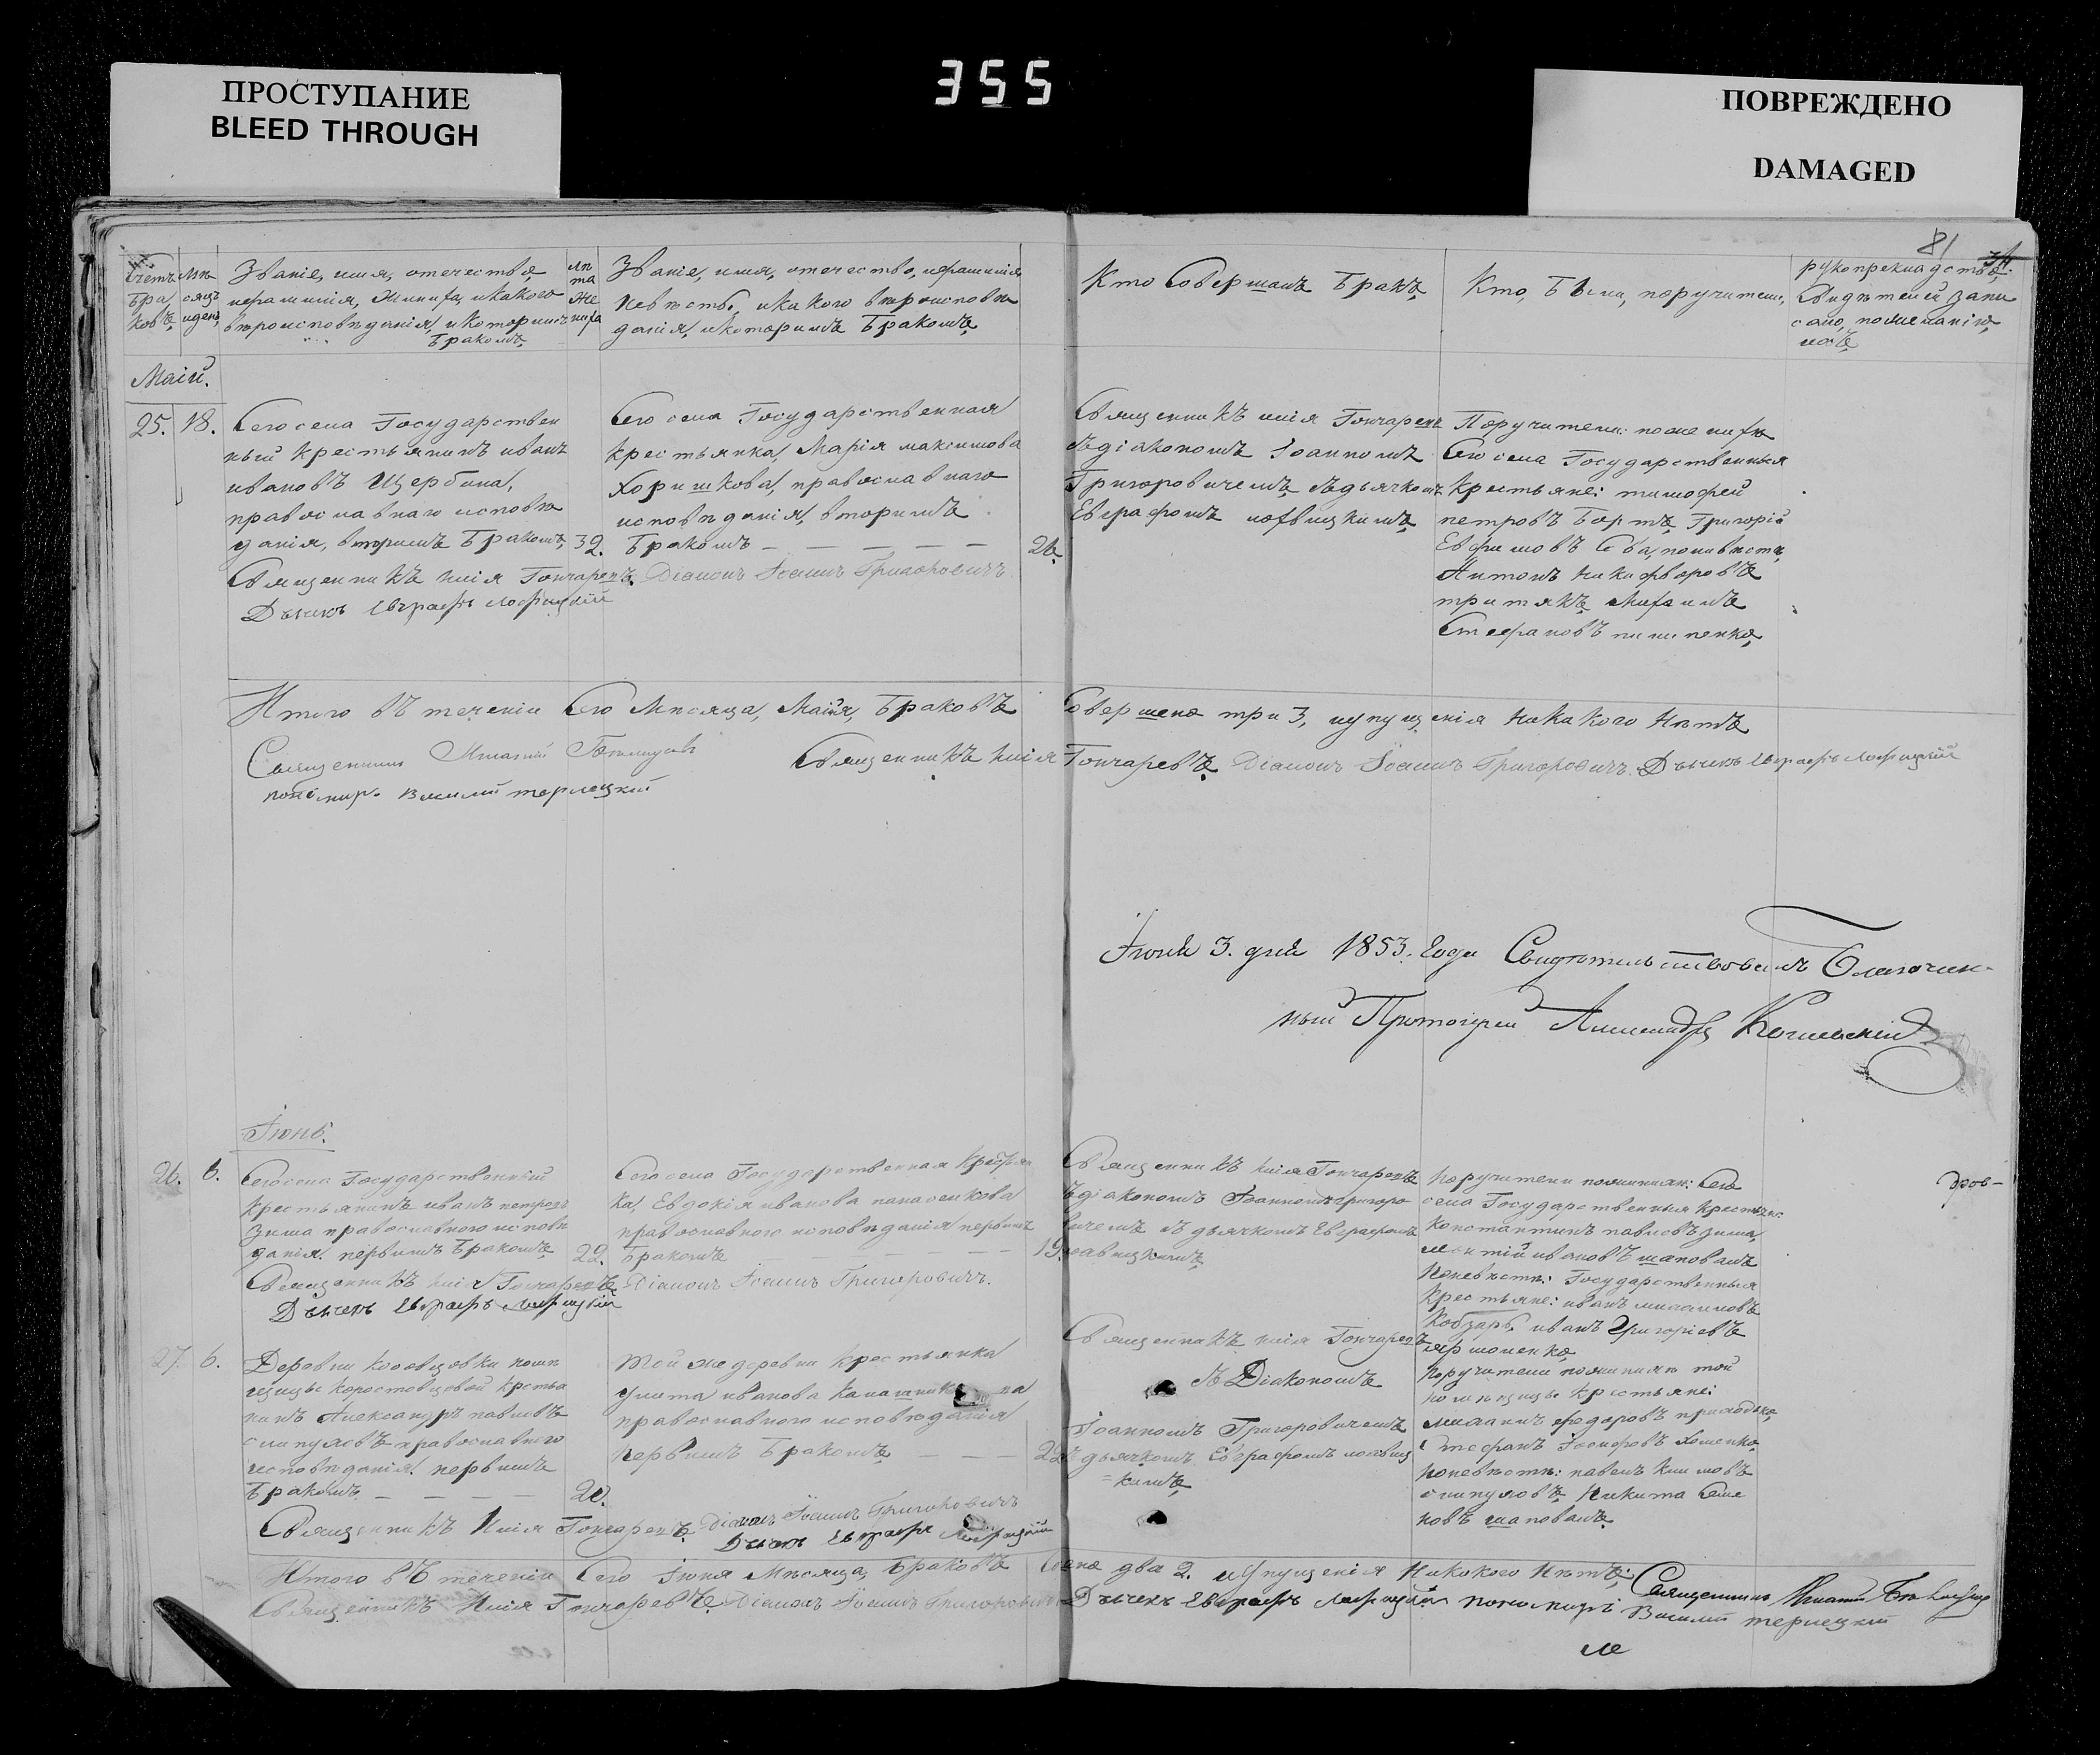 ПРОСТУПАНИЕ
BLEED THROUGH
355
ПОВРЕЖДЕНО
DAMAGED
81
Счетъ
бра
ковъ
Мѣ
сяцъ
и день
Званіе, имя, отечество
и фамилія, жениха, и какого
вѣроисповѣданія, и которимъ
бракомъ
Лѣ
та
же
ниха
Званіе, имя, отечество, и фамилія
невѣсты, и какого вѣроисповѣ
данія, и которимъ бракомъ
Кто совершалъ бракъ
Кто были, поручители,
рукоприкладство
свидѣтелей запи
сано, по желанію
ихъ
Маій.
25. 18.
Сего села Государствен
ный крестьянинъ иванъ
ивановъ Щербина,
православнаго исповѣ
данія, вторимъ бракомъ, 32.
Сего села Государственная
крестьянка, Марія максимова
Хоришкова, православнаго
исповѣданія, вторимъ
бракомъ — — — — — 26.
Священникъ илія Гончаревъ
съ діакономъ Іоанномъ
Григоровичемъ, съ дьячкомъ
Евграфомъ
Поручители: по женихѣ
Сего села Государственныя
крестьяне: тимофей
петровъ Бортъ, Григорій
Ефимовъ по невѣстѣ,
Антонъ никифоровъ
третякъ
Стефановъ пилипенко,
Священникъ илія Гончаревъ. Діаконъ Іоаннъ Григоровичъ.
Дьячекъ Евграфъ
Итого въ теченіи Сего Мѣсяца, Маія, браковъ совершено три 3, и упущенія никакого нѣтъ
Священникъ Священникъ илія Гончаревъ. Діаконъ Іоаннъ Григоровичъ. Дьячекъ Евграфъ
пономарь Василій терлецкій
Іюня 3. дня 1853. года Свидѣтельствовалъ Благочин-
ный Протоіерей
Іюнь.
26. 6.
Сего села Государственный
крестьянинъ иванъ петровъ
зима православного исповѣ
данія. первимъ бракомъ 22.
Сего села Государственная крестьян
ка, Евдокія иванова панасенкова
православного исповѣданія первимъ
бракомъ — — — — 19.
Священникъ илія Гончаревъ
съ діакономъ Іоанномъ григоро
вичемъ съ дьячкомъ Евграфомъ
Поручители по женихѣ: Сего
села Государственныя крестьяне:
константинъ павловъ зима,
ивановъ шаповалъ
по невѣстѣ: Государственныя
крестьяне: иванъ михаиловъ
кобзарь, иванъ григоріевъ
ярмоленко
Священникъ илія Гончаревъ Діаконъ Іоаннъ Григоровичъ.
Дьячекъ Евграфъ
27. 6.
Деревни помѣ
щицы коростовцовой крестья
нинъ Александръ павловъ
православного
исповѣданія. первимъ
бракомъ — — — — 20.
Той же деревни крестьянка
улита иванова
православного исповѣданія
первимъ бракомъ — — 22.
Священникъ илія Гончаревъ
съ Діакономъ
Іоанномъ Григоровичемъ
съ дьячкомъ Евграфомъ
поручители по женихѣ той
помѣщицы крестьяне:
михаилъ федоровъ приходько
Стефанъ Іосифовъ хоменко
по невѣстѣ: павелъ климовъ
никита семе
новъ шаповалъ
Священникъ Илія Гончаревъ. Діаконъ Іоаннъ Григоровичъ
Дьячекъ Евграфъ
Итого въ теченіи Сего Іюня Мѣсяца, браковъ два 2. и упущенія никокого нѣтъ:
Священникъ Илія Гончаревъ. Діаконъ Іоаннъ Григоровичъ Дьячекъ Евграфъ пономарь Василій терлецкій